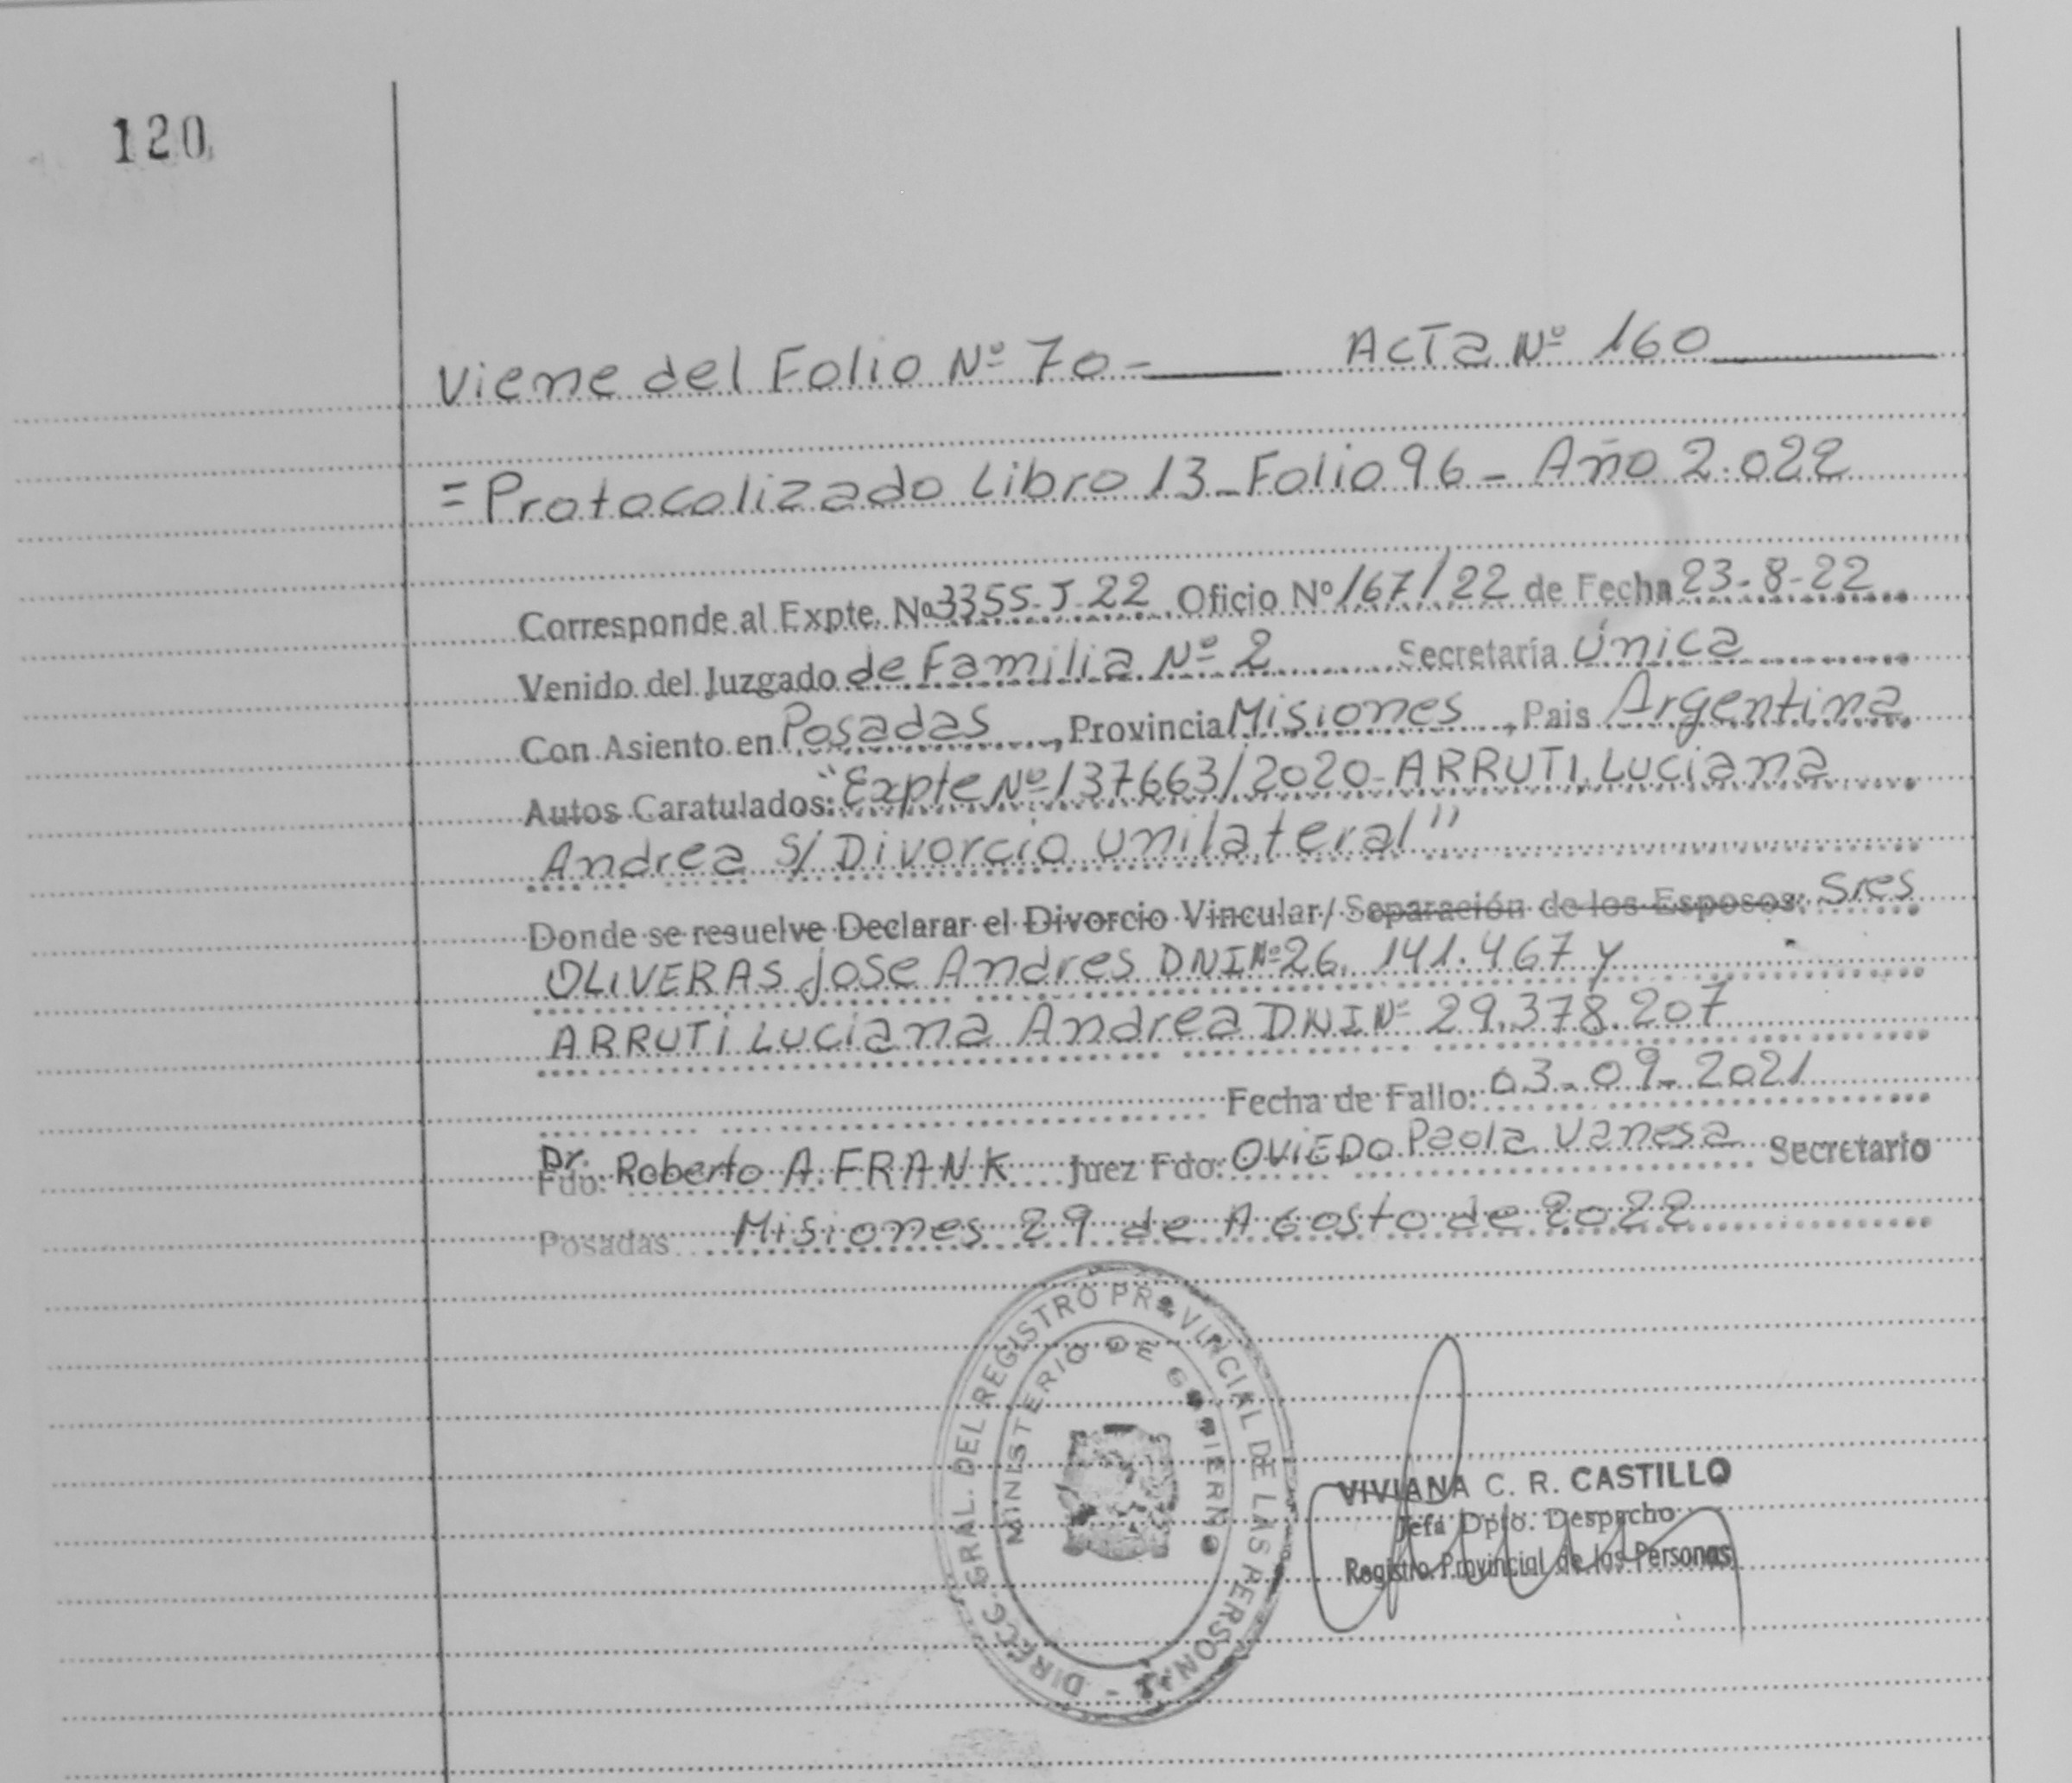 120
Viene del Folio Nº 70 - Acta Nº 160
= Protocolizado Libro 13 - Folio 96 - Año 2.022
Corresponde al Expte. Nº 3355-J-22 Oficio Nº 167/22 de Fecha 23-8-22
Venido del Juzgado de Familia Nº 2 Secretaría Única
Con Asiento en Posadas, Provincia Misiones, Pais Argentina
Autos Caratulados: "Expte Nº 137663/2020 - ARRUTI, Luciana
Andrea S/ Divorcio unilateral"
Donde se resuelve Declarar el Divorcio Vincular/ Separación de los Esposos: Sres
OLIVERAS Jose Andres DNI Nº 26.141.467 y
ARRUTI Luciana Andrea DNI Nº 29.378.207
Fecha de Fallo: 03-09-2021
Dr.
Fdo: Roberto A. FRANK Juez Fdo: OVIEDO Paola Vanesa Secretario
Posadas Misiones 29 de Agosto de 2022
DIRECC. GRAL. DEL REGISTRO PROVINCIAL DE LAS PERSONAS -
MINISTERIO DE GOBIERNO
VIVIANA C. R. CASTILLO
Jefa Dpto. Despacho
Registro Provincial de las Personas